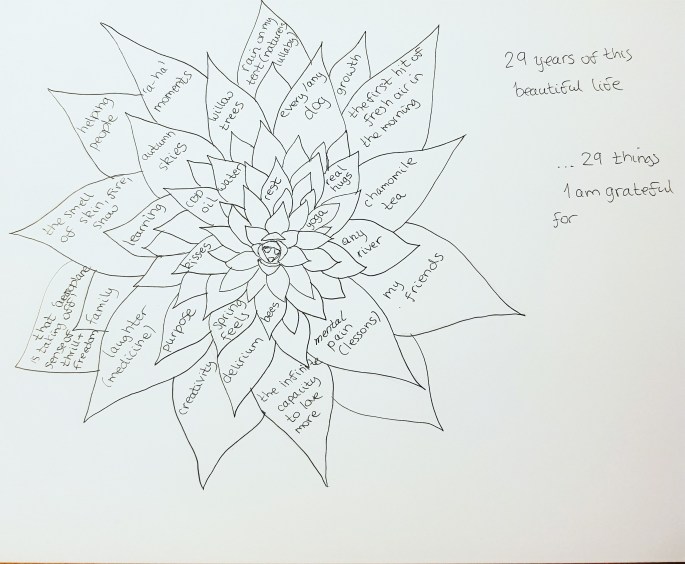 29 years of this
beautiful life
... 29 things
I am grateful
for
rain on my
tent (nature's
lullaby)
'a-ha'
moments
willow
trees
every/any
dog
growth
the first hit of
fresh air in
the morning
helping
people
autumn
skies
water
rest
real
hugs
chamomile
tea
the smell
of skin, fire,
snow
learning
oil
yoga
any
river
kisses
my
friends
that
is taking off
sense of
thrill +
freedom
family
laughter
(medicine)
purpose
spring
feels
bees
mental
pain
(lessons)
creativity
delirium
the infinite
capacity
to love
more